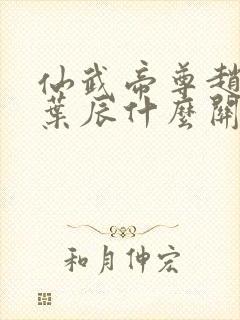 仙武帝尊趙
葉辰什麼開
和月伸宏